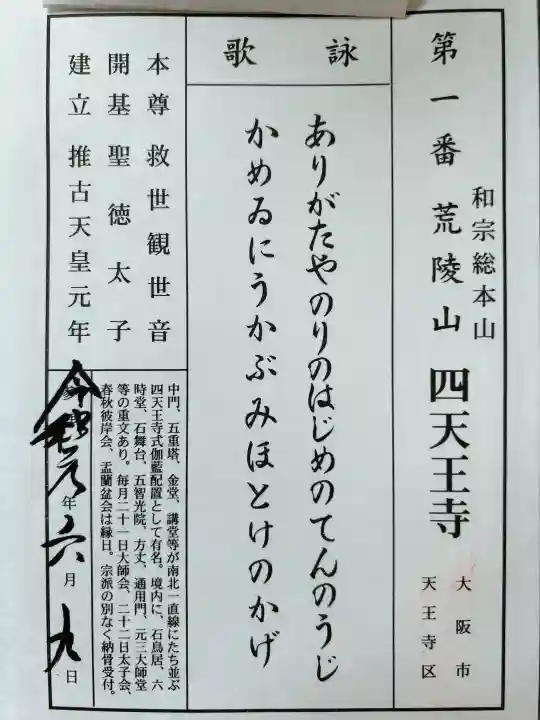 第一番 荒陵山 四天王寺
和宗総本山
大阪市
天王寺区
詠歌
ありがたやのりのはじめのてんのうじ
かめゐにうかぶみほとけのかげ
本尊 救世観世音
開基 聖徳太子
建立 推古天皇元年
中門、五重塔、金堂、講堂等が南北一直線にたち並ぶ
四天王寺式伽藍配置として有名。境内に、石鳥居、六
時堂、石舞台、五智光院、方丈、通用門、元三大師堂
等の重文あり。毎月二十一日大師会、二十二日太子会、
春秋彼岸会、盂蘭盆会は縁日。宗派の別なく納骨受付。
令和元年六月九日